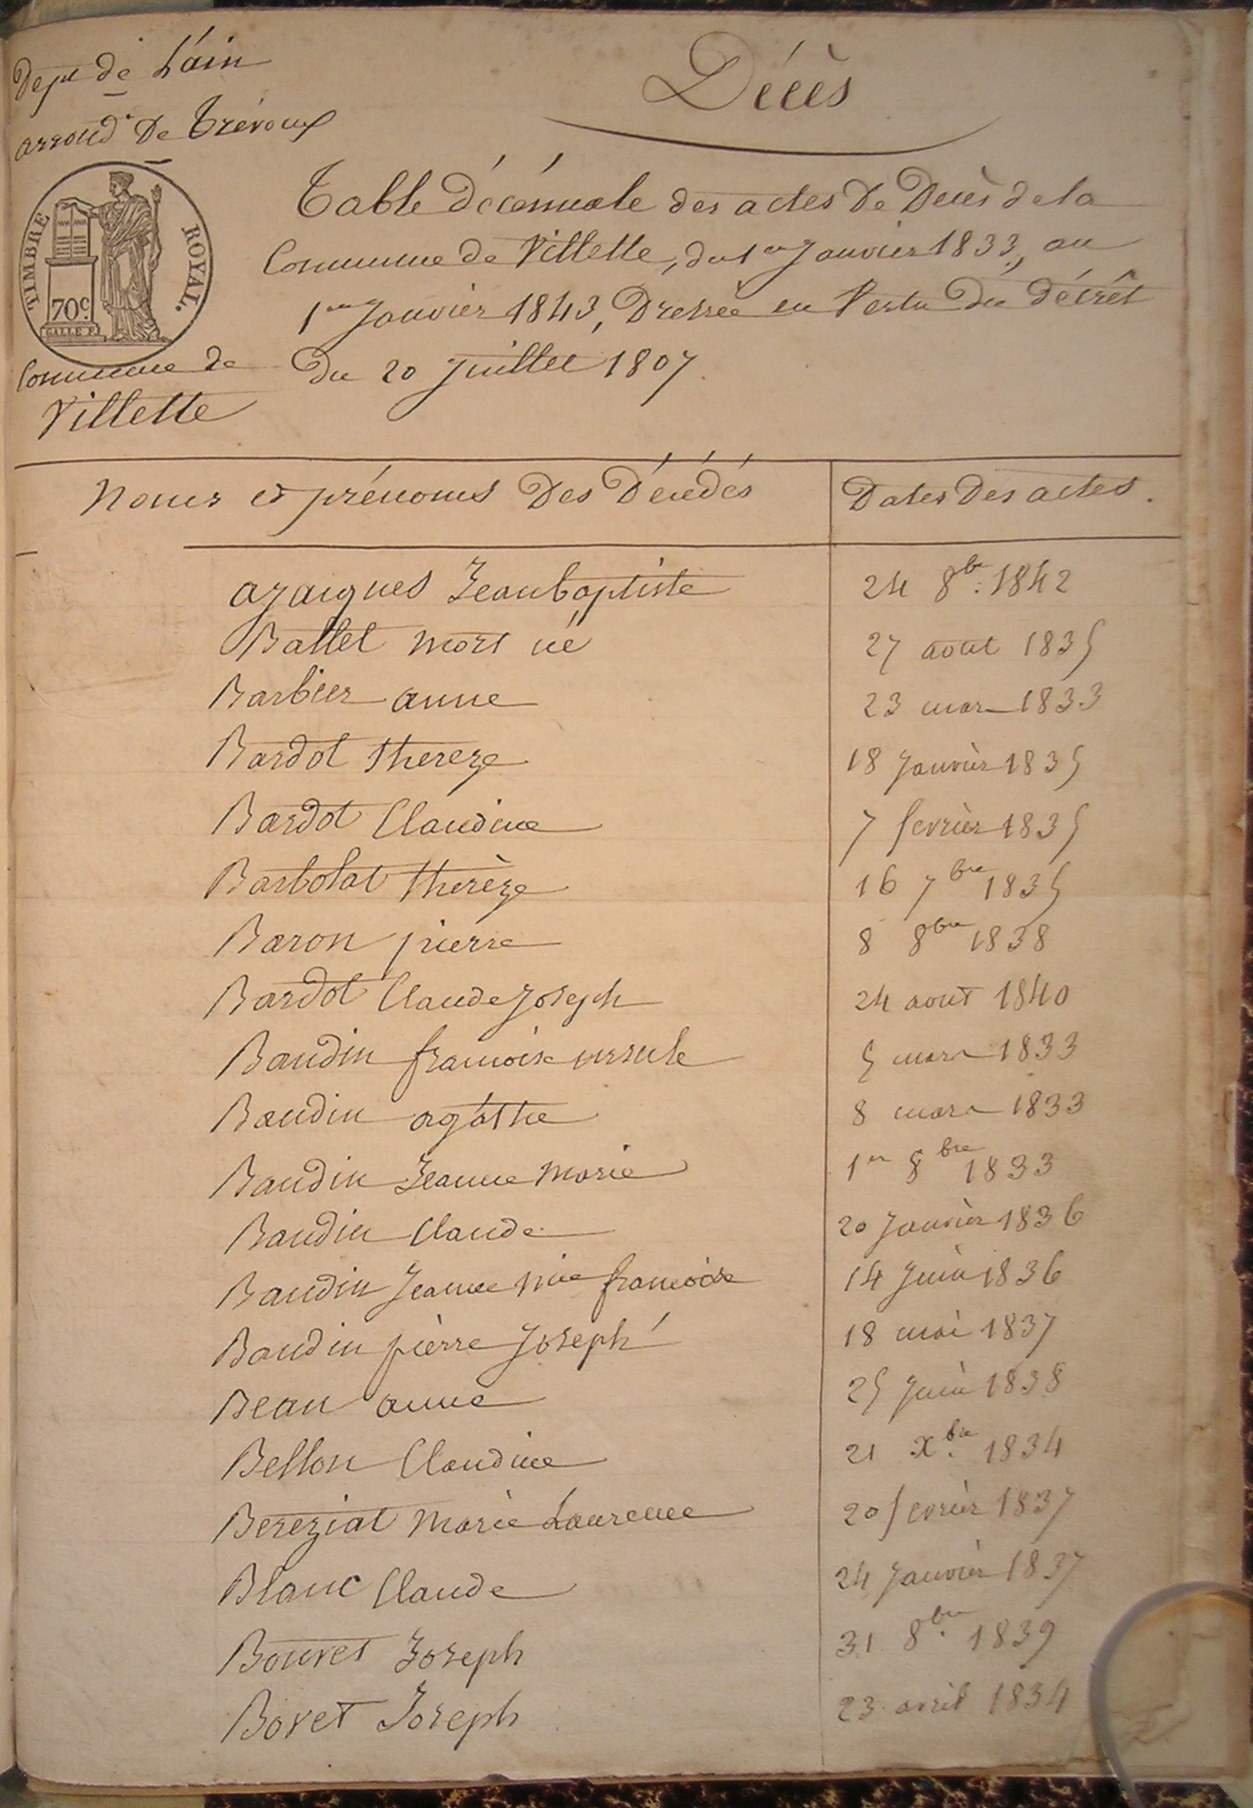 Dept de L'ain
Décès
arrondt De Trévoux
TIMBRE ROYAL.
70c.
Table Décénnale des actes De Decès de la
Commune de Villette, du 1er Janvier 1833, au
1er Janvier 1843, Dressée en Vertu Du décrêt
Du 20 Juillet 1807.
Commune de
Villette
Noms et prénoms Des Décédés Dates Des actes.
azaigues Jean baptiste 24 8bre. 1842
Ballet mort né 27 aout 1835
Barbier anne 23 mars 1833
Bardot thereze 18 Janvièr 1835
Bardot Claudine 7 fevrièr 1835
Barbolat therèze 16 7bre 1835
Baron pierre 8 8bre 1838
Bardot Claude Joseph 24 aout 1840
Baudin francoise ursule 5 mars 1833
Baudin agathe 8 mars 1833
Baudin Jeanne Marie 1er 8bre 1833
Baudin Claude 20 Janvièr 1836
Baudin Jeanne Mie francoise 14 Juin 1836
Baudin pièrre Joseph 18 mai 1837
Beau anne 25 Juin 1838
Bellon Claudine 21 Xbre. 1834
Bereziat Marie Laurence 20 fevrièr 1837
Blanc Claude 24 Janvièr 1837
Bouvet Joseph 31 8bre. 1839
Bovet Joseph 23 avril 1834